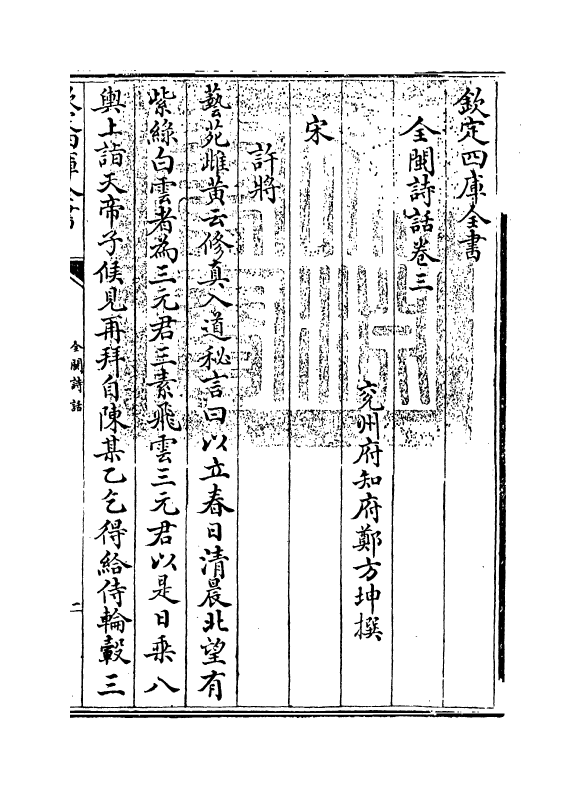 欽定四庫全書
全閩詩話卷三
兖州府知府鄭方坤撰
宋
許將
藝苑雌黄云修真入道秘言曰以立春日清晨北望有
紫綠白雲者為三元君三素飛雲三元君以是日乗八
輿上詣天帝子候見再拜自陳某乙乞得給侍輪轂三
全閩詩話